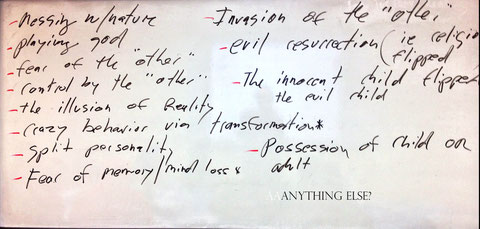 - Messing w/nature
- playing god
- fear of the "other"
- control by the "other"
- the illusion of Reality
- crazy behavior via transformation*
- split personality
- Fear of memory/mind loss *
- Invasion of the "other"
- evil resurrection (ie religion
flipped
- The innocent child flipped
the evil child
- Possession of child or
adult
ANYTHING ELSE?